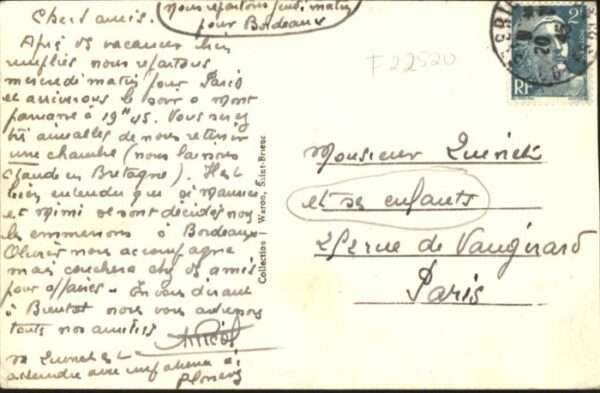 Chers amis.
Nous repartons jeudi matin
pour Bordeaux
Après des vacances bien
remplies nous repartons
mercredi matin pour Paris
et arriverons le soir à Mont
parnasse à 19h45. Vous seriez
très aimables de nous retenir
une chambre (nous laissons
Claude en Bretagne). Il est
bien entendu que si Maurice
et Mimi se sont décidés nous
les emmenons à Bordeaux.
nous accompagne
mais couchera chez des amis
pour affaires. En vous disant
à Bientôt nous vous
toute nos amitiés
M
attendre avec impatience à
F22520
2F
RF
20
Collection Waron, Saint-Brieuc
Monsieur
et ses enfants
rue de Vaugirard
Paris